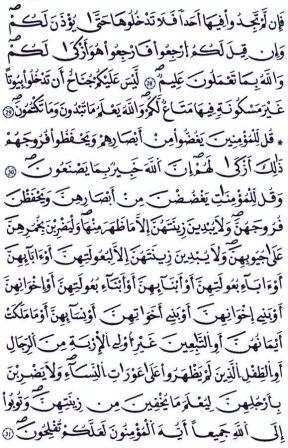 فَإِن لَّمْ تَجِدُوا فِيهَا أَحَدًا فَلَا تَدْخُلُوهَا حَتَّىٰ يُؤْذَنَ لَكُمْ
وَإِن قِيلَ لَكُمُ ارْجِعُوا فَارْجِعُوا هُوَ أَزْكَىٰ لَكُمْ
وَاللَّهُ بِمَا تَعْمَلُونَ عَلِيمٌ ٢٨ لَّيْسَ عَلَيْكُمْ جُنَاحٌ أَن تَدْخُلُوا بُيُوتًا
غَيْرَ مَسْكُونَةٍ فِيهَا مَتَاعٌ لَّكُمْ وَاللَّهُ يَعْلَمُ مَا تُبْدُونَ وَمَا تَكْتُمُونَ ٢٩
* قُل لِّلْمُؤْمِنِينَ يَغُضُّوا مِنْ أَبْصَارِهِمْ وَيَحْفَظُوا فُرُوجَهُمْ
ذَٰلِكَ أَزْكَىٰ لَهُمْ إِنَّ اللَّهَ خَبِيرٌ بِمَا يَصْنَعُونَ ٣٠
وَقُل لِّلْمُؤْمِنَاتِ يَغْضُضْنَ مِنْ أَبْصَارِهِنَّ وَيَحْفَظْنَ
فُرُوجَهُنَّ وَلَا يُبْدِينَ زِينَتَهُنَّ إِلَّا مَا ظَهَرَ مِنْهَا وَلْيَضْرِبْنَ بِخُمُرِهِنَّ
عَلَىٰ جُيُوبِهِنَّ وَلَا يُبْدِينَ زِينَتَهُنَّ إِلَّا لِبُعُولَتِهِنَّ أَوْ ءَابَائِهِنَّ
أَوْ ءَابَاءِ بُعُولَتِهِنَّ أَوْ أَبْنَائِهِنَّ أَوْ أَبْنَاءِ بُعُولَتِهِنَّ أَوْ إِخْوَانِهِنَّ
أَوْ بَنِي إِخْوَانِهِنَّ أَوْ بَنِي أَخَوَاتِهِنَّ أَوْ نِسَائِهِنَّ أَوْ مَا مَلَكَتْ
أَيْمَانُهُنَّ أَوِ التَّابِعِينَ غَيْرِ أُولِي الْإِرْبَةِ مِنَ الرِّجَالِ
أَوِ الطِّفْلِ الَّذِينَ لَمْ يَظْهَرُوا عَلَىٰ عَوْرَاتِ النِّسَاءِ وَلَا يَضْرِبْنَ
بِأَرْجُلِهِنَّ لِيُعْلَمَ مَا يُخْفِينَ مِن زِينَتِهِنَّ وَتُوبُوا
إِلَى اللَّهِ جَمِيعًا أَيُّهَ الْمُؤْمِنُونَ لَعَلَّكُمْ تُفْلِحُونَ ٣١